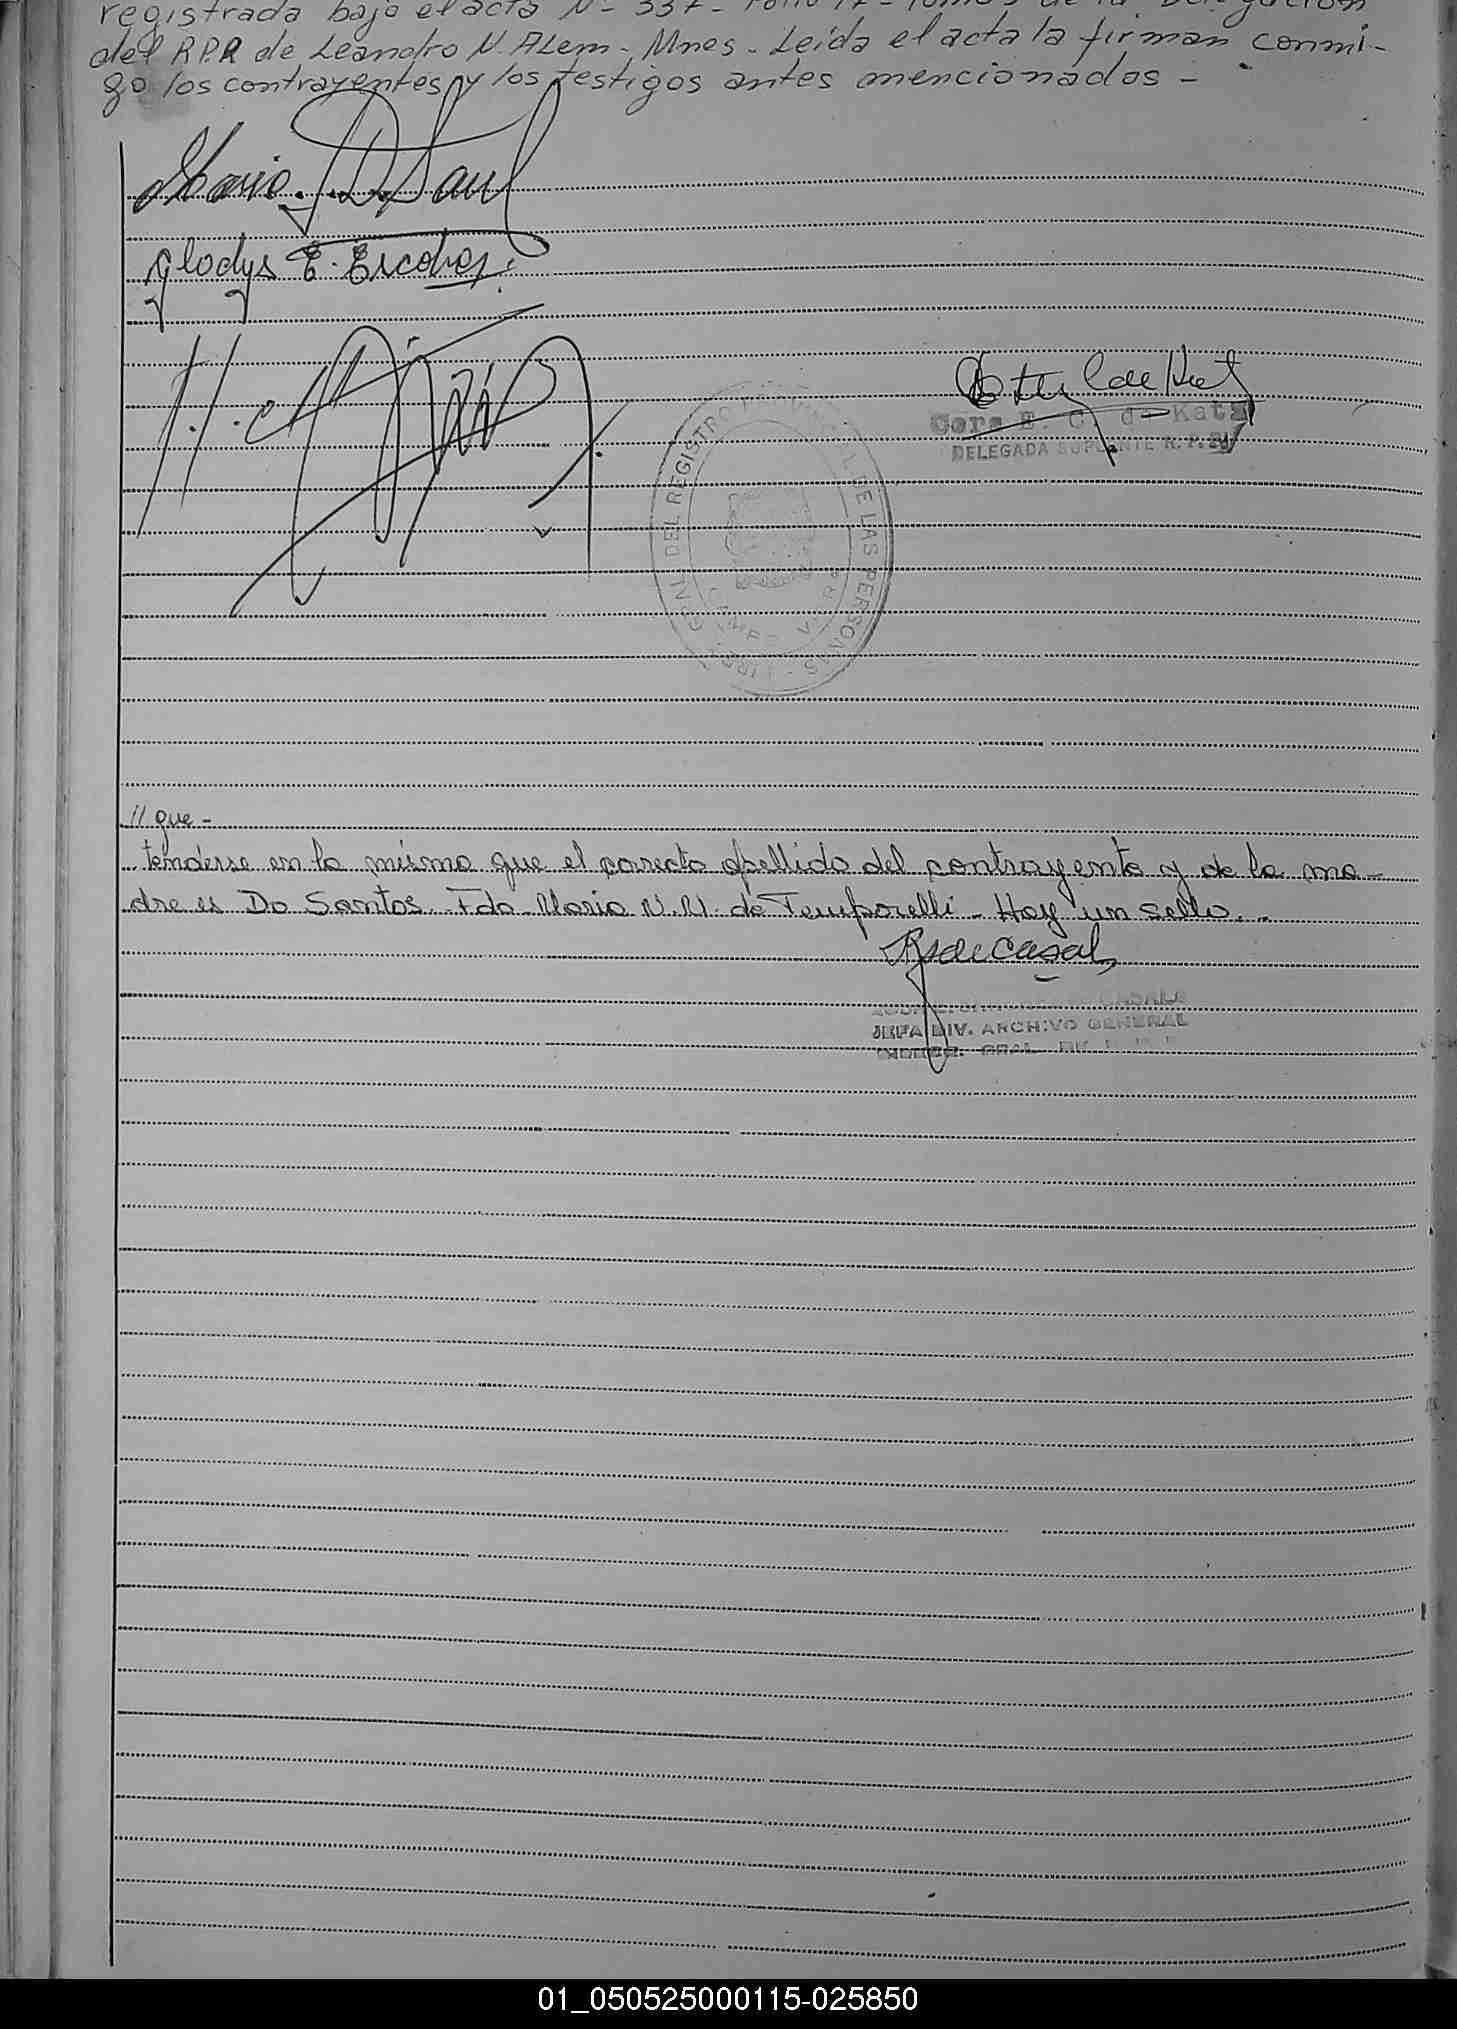 registrada bajo el acta Nº 337- Folio 17- Tomo de la Delegación
del R.P.R de Leandro N. ALem - Mnes - Leída el acta la firman conmi-
go los contrayentes y los testigos antes mencionados -
Gladys E. Escobar
Cora E. C. de Katz
DELEGADA SUPLENTE R. P. P.
GRAL. DEL REGISTRO PROVINCIAL DE LAS PERSONAS
CAMPO V
// que -
tenderse en la misma que el correcto apellido del contrayente y de la ma-
dre es Do Santos. Fdo. Maria N.N. de Temporelli - Hay un sello. -
R S de Casals
CASALS
JEFA DIV. ARCHIVO GENERAL
DIRECC. GRAL. DE R.
01_050525000115-025850